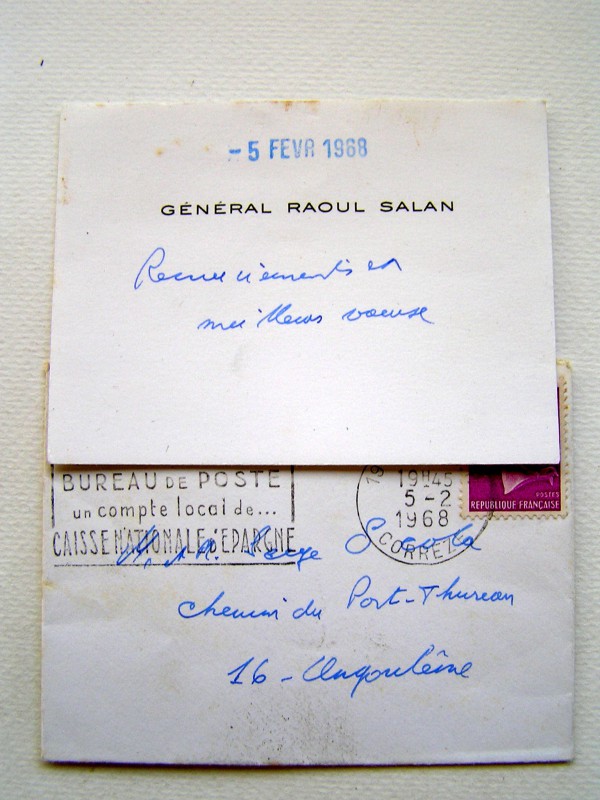 - 5 FEVR 1968
GÉNÉRAL RAOUL SALAN
Remerciements et
meilleurs voeux
BUREAU DE POSTE
un compte local de...
CAISSE NATIONALE D'EPARGNE
19H45
5 - 2
1968
CORREZE
POSTES
REPUBLIQUE FRANÇAISE
Serge
chemin du Port-Thureau
16 - Angoulême